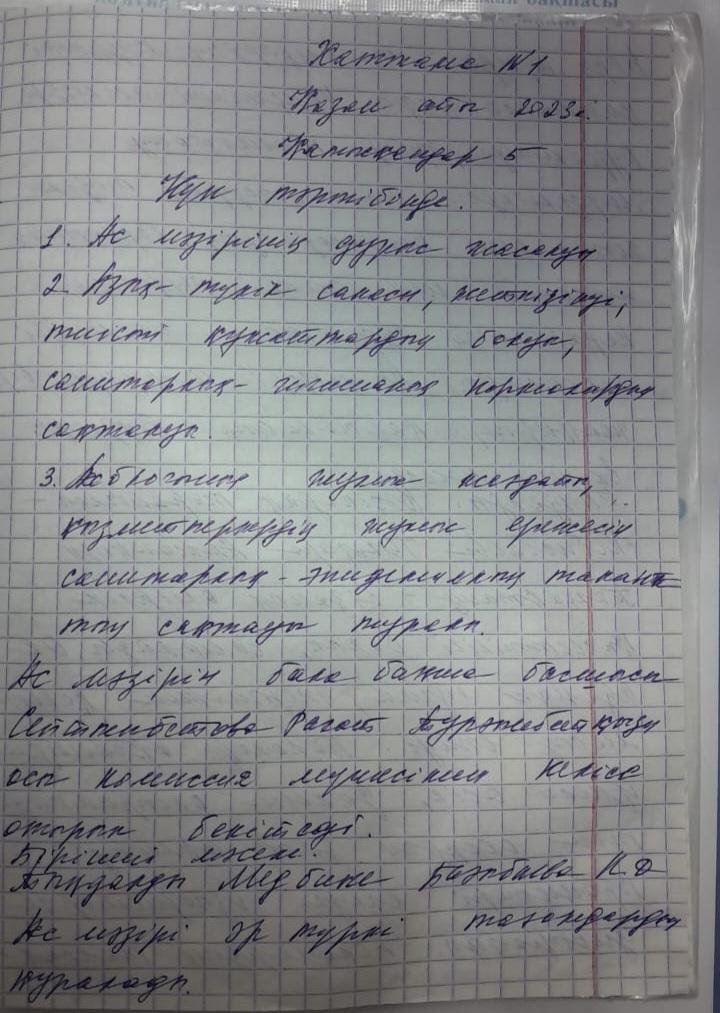 бақшасы
Хаттама №1
Қазан айы 2023ж.
Қатысқандар 5
Күн тәртібінде.
1. Ас мәзірінің дұрыс жасалуы
2. Азық-түлік сапасы, жеткізілуі,
тиісті құжаттардың болуы,
санитарлық-гигиеналық нормалардың
сақталуы.
3. Асблогының жұмыс жағдайы,
қызметкерлердің жұмыс ережесін
санитарлық-эпидемиялық талап
тың сақтауы туралы.
Ас мәзірін бала бақша басшысы
Сейтжибетова Рахат
осы комиссия мүшесімен келісе
отырып бекітеді.
Бірінші мәселе.
Тыңдалды Медбике Базибаева К.Д
Ас мәзірі әр түрлі тағамдардың
құралады.